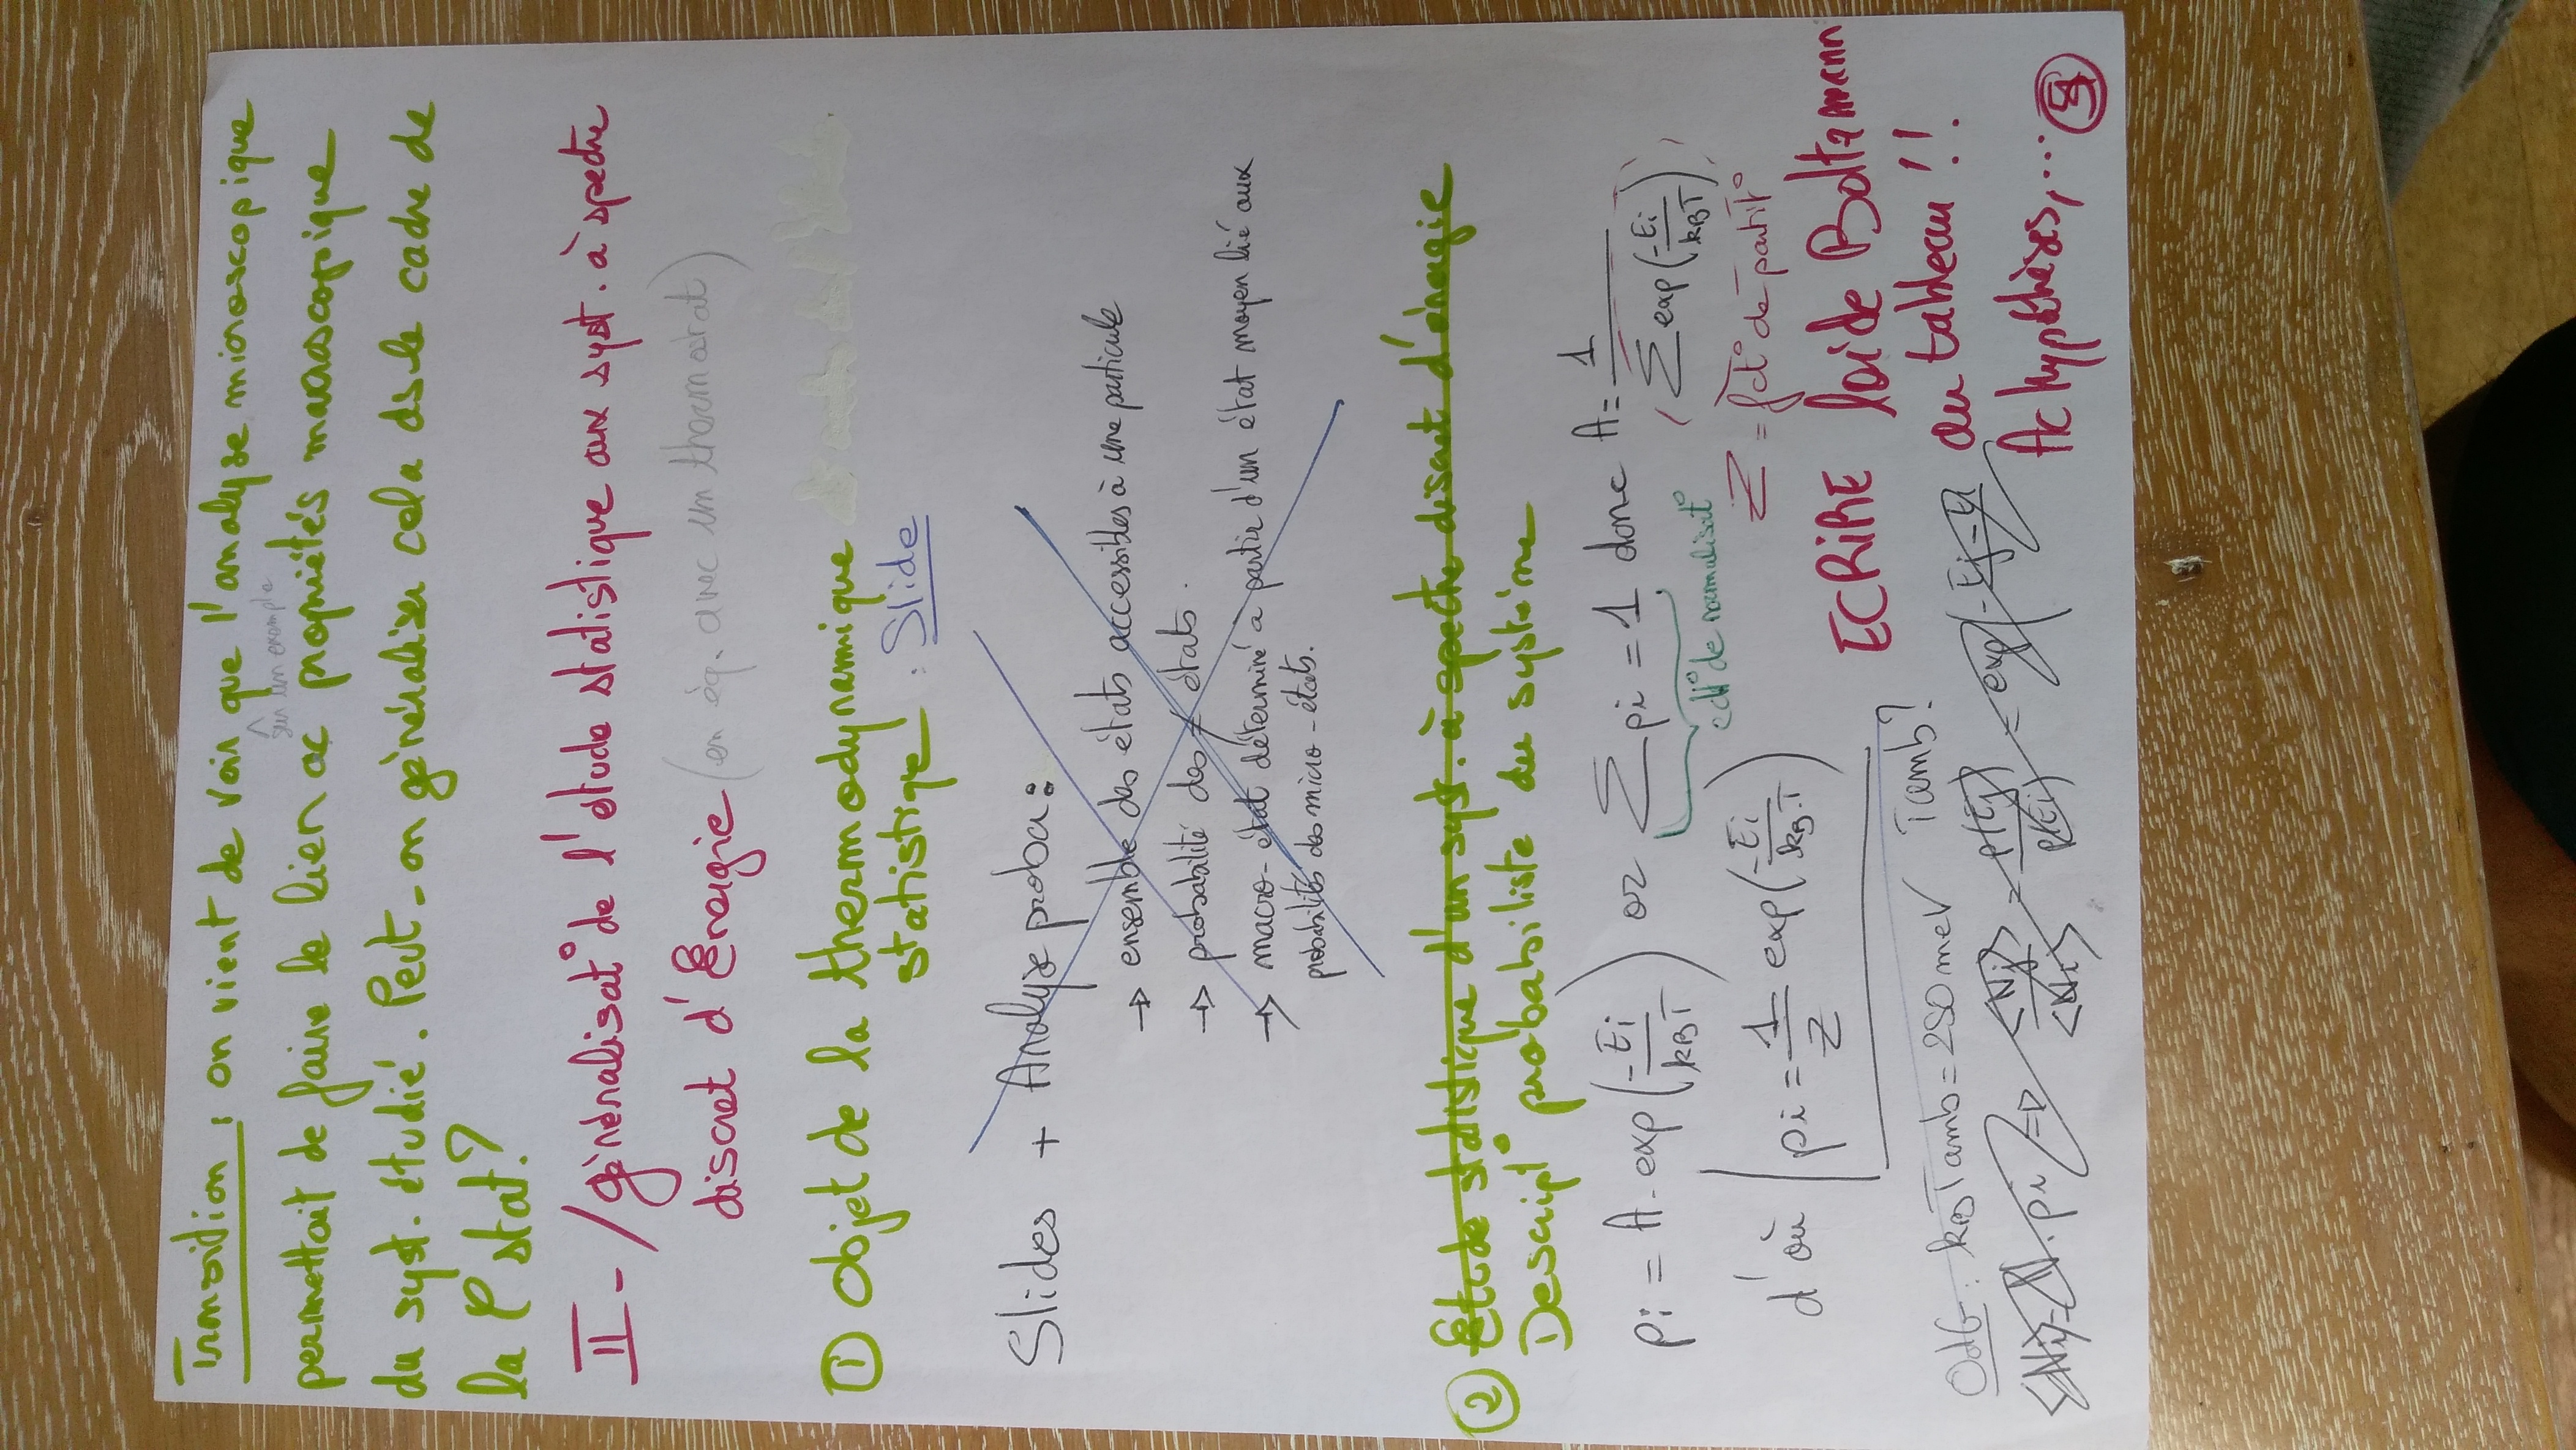 Transition : on vient de voir que l'analyse microscopique
sur un exemple
permettait de faire le lien ac propriétés macroscopique
du syst. étudié. Peut-on généraliser cela ds le cadre de
la P stat?
II-/ généralisat° de l'étude statistique aux syst. à spectre
discret d'Energie (en éq. avec un thermostat)
① Objet de la thermodynamique
statistique : Slide
Slides + Analyse proba:
→ ensemble des états accessibles à une particule
→ probabilité des ≠ états.
→ macro-état déterminé à partir d'un état moyen lié aux
probabilités des micro-états.
② Etude statistique d'un syst. à spectre discret d'énergie
Descript° probabiliste du système
pi = A.exp(-Ei/kBT) or Σ pi = 1 donc A = 1/Σ exp(-Ei/kBT)
cdt° de normalisat°
Z = fct° de partit°
d'où pi = 1/Z exp(-Ei/kB.T)
ECRIRE loi de Boltzmann
au tableau !!
Ac hypothèses,...
Odg : kBTamb = 250 meV Tamb?
<Ni> = N.pi ⇒ <Nj>/<Ni> = p(Ej)/p(Ei) = exp(-Ej-Ei